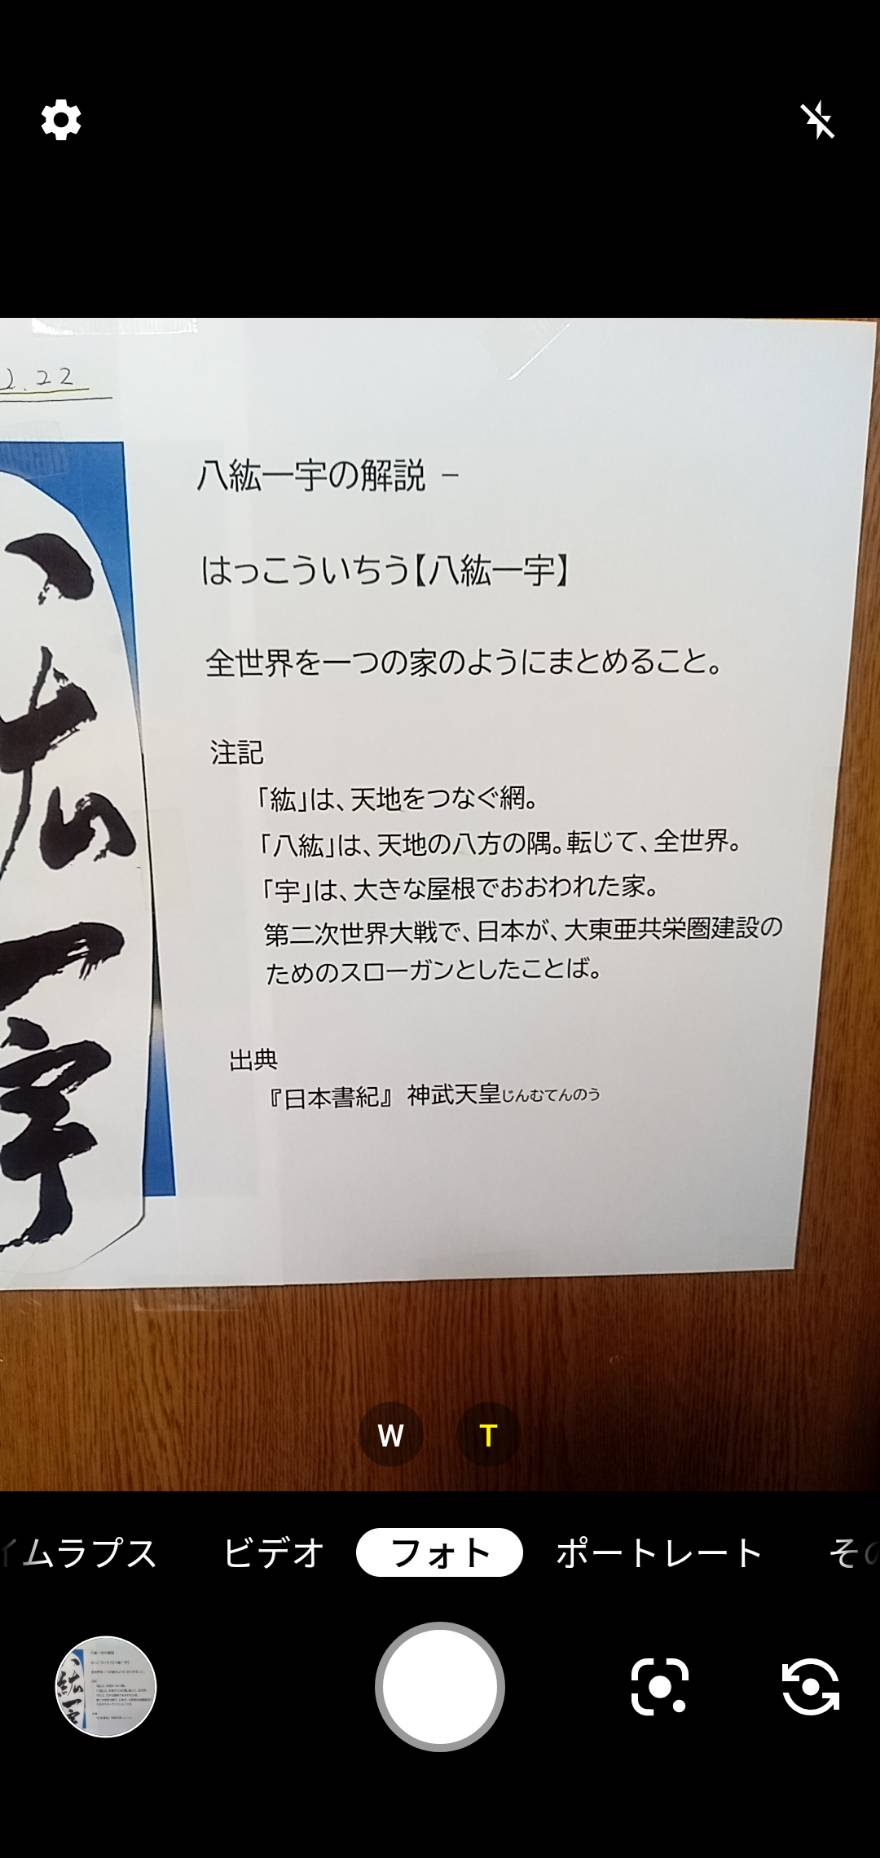 2.22
八紘一宇
八紘一宇の解説 −
はっこういちう【八紘一宇】
全世界を一つの家のようにまとめること。
注記
「紘」は、天地をつなぐ網。
「八紘」は、天地の八方の隅。転じて、全世界。
「宇」は、大きな屋根でおおわれた家。
第二次世界大戦で、日本が、大東亜共栄圏建設の
ためのスローガンとしたことば。
出典
『日本書紀』 神武天皇じんむてんのう
W T
イムラプス ビデオ フォト ポートレート その